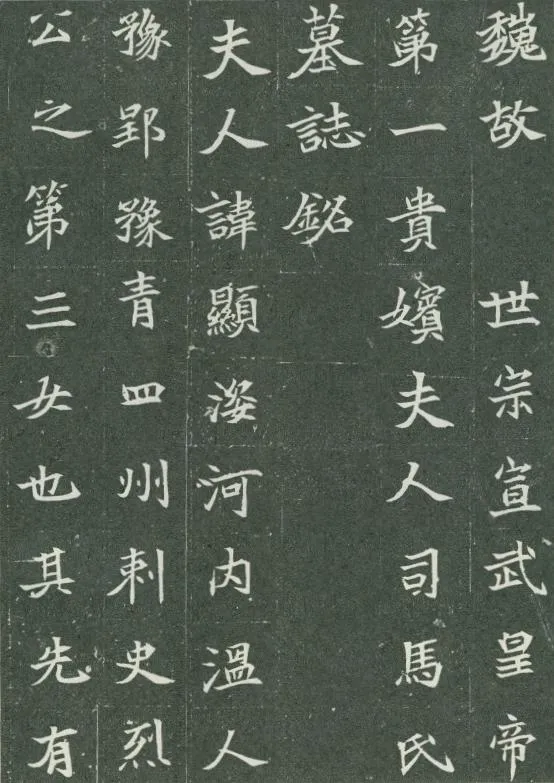 魏故 世宗宣武皇帝
第一貴嬪夫人司馬氏
墓誌銘
夫人諱顯姿河內溫人
豫郢豫青四州刺史烈
公之第三女也其先有